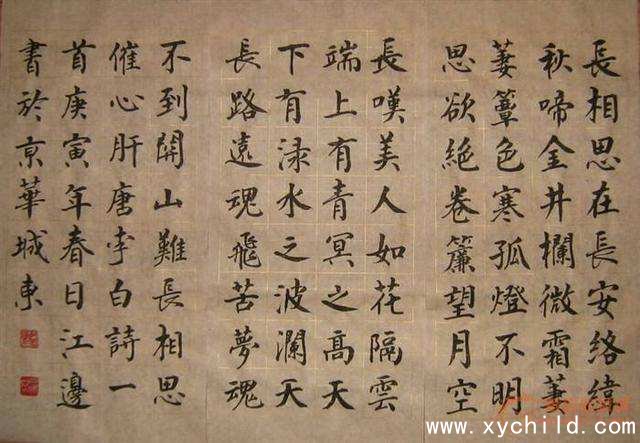 長相思在長安絡緯
秋啼金井欄微霜萋
萋簟色寒孤燈不明
思欲絕卷簾望月空
長嘆美人如花隔雲
端上有青冥之高天
下有淥水之波瀾天
長路遠魂飛苦夢魂
不到開山難長相思
催心肝唐李白詩一
首庚寅年春日江邊
書於京華城東
www.xychild.com